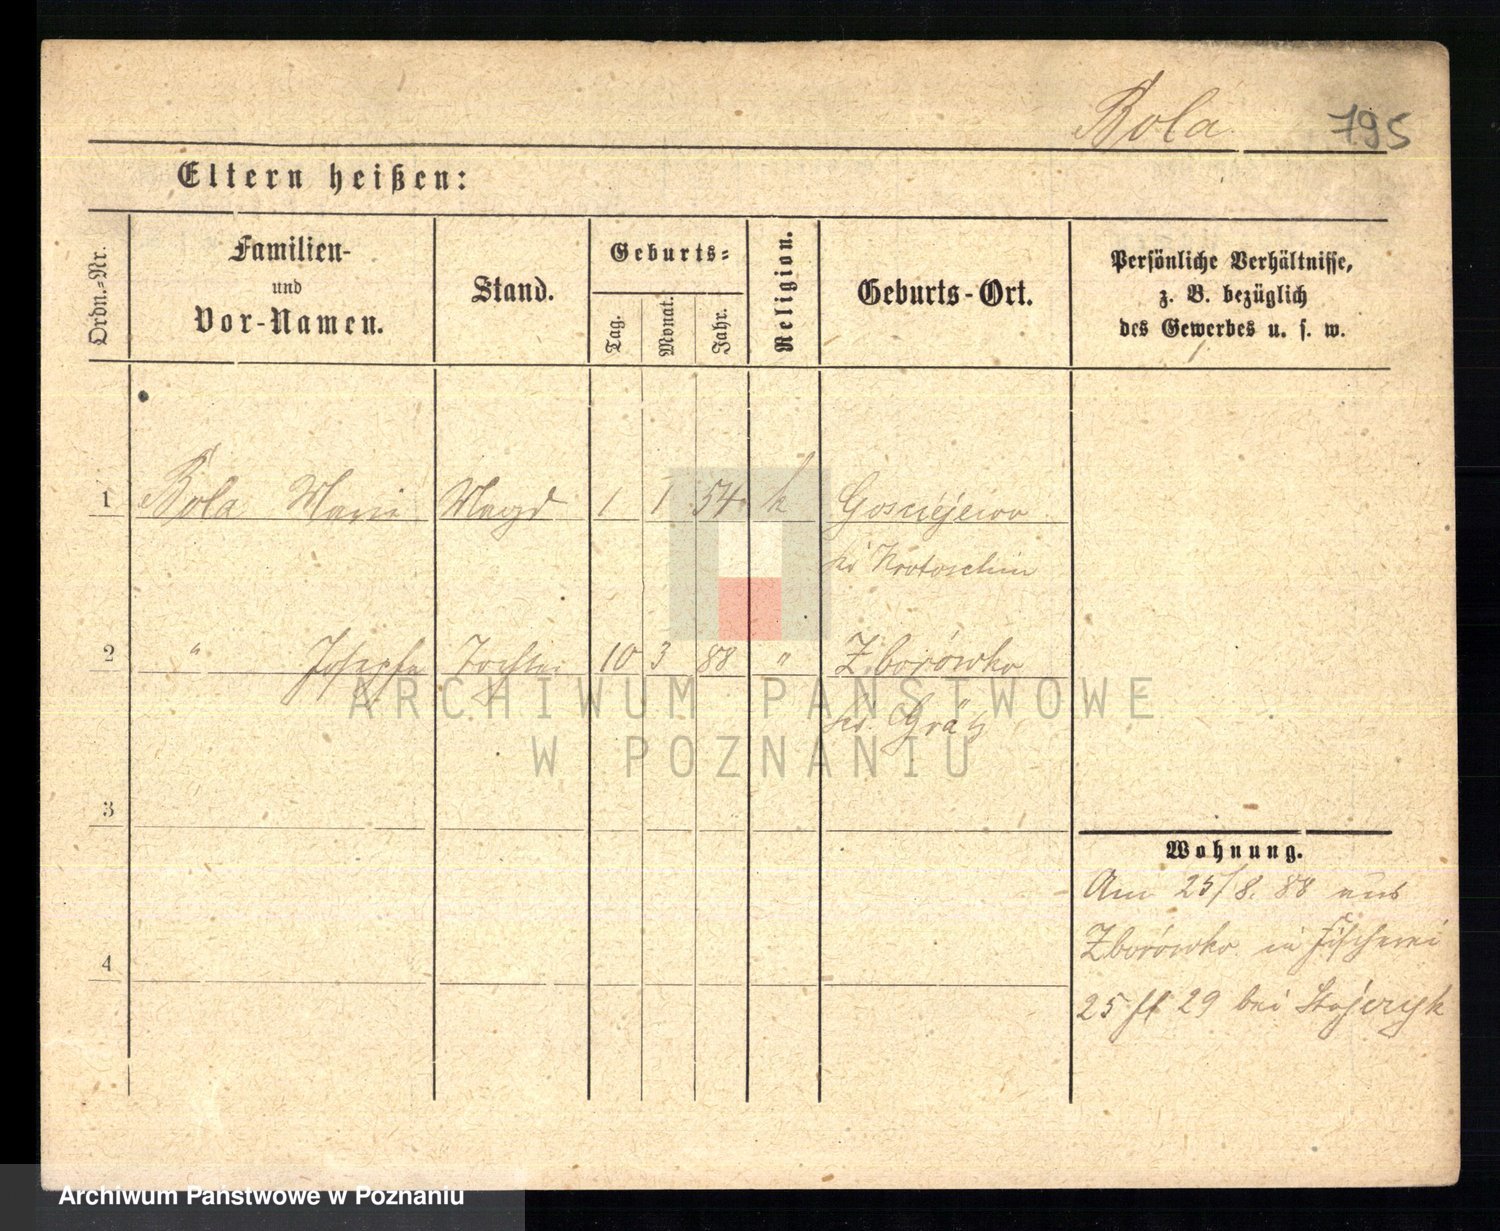 Bola 795
Eltern heißen:
Ordn.-Nr.
Familien-
und
Vor-Namen.
Stand.
Geburts-
Tag.
Monat.
Jahr.
Religion.
Geburts-Ort.
Persönliche Verhältnisse,
z. B. bezüglich
des Gewerbes u. s. w.
1 Bola Marie Magd 1 1 54 k Gosciejewo
Krotoschin
2 " Josepha Tochter 10 3 88 " Zborówko
Grätz
3
4
Wohnung.
Am 25/8. 88 aus
Zborówko in Fischerei
25 29 bei
ARCHIWUM PAŃSTWOWE
W POZNANIU
Archiwum Państwowe w Poznaniu